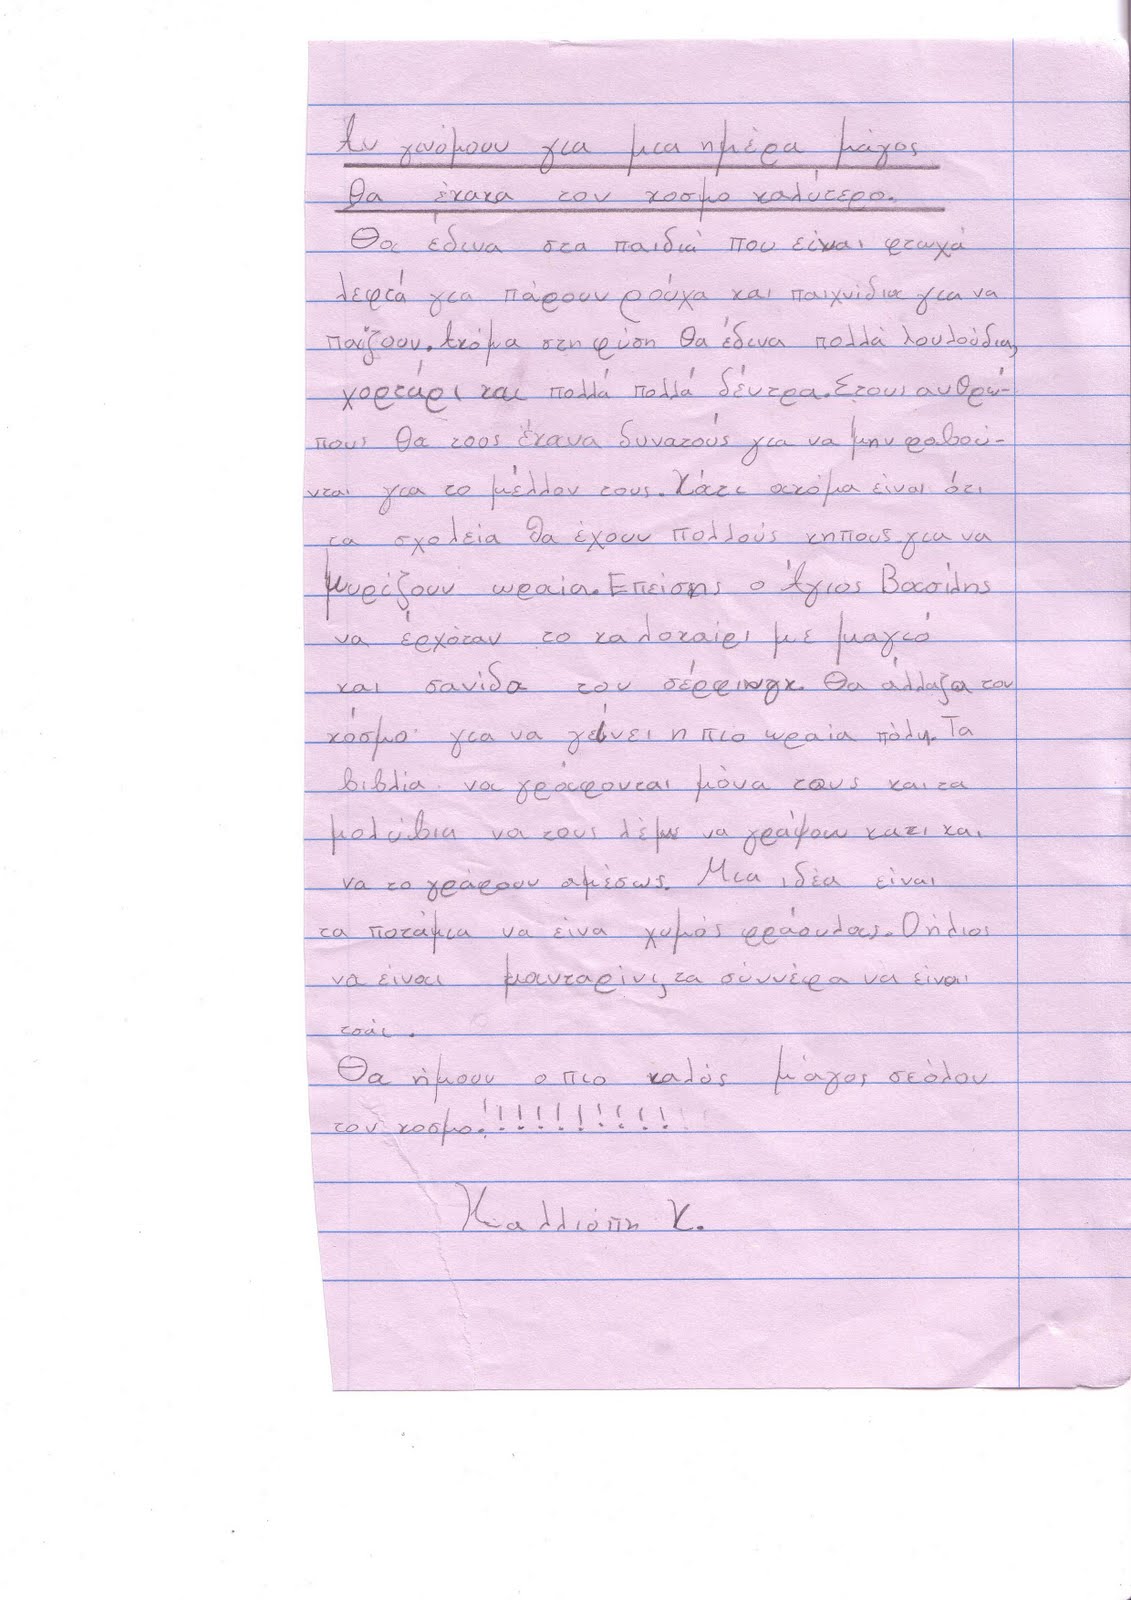 Αν γινόμουν για μια ημέρα μάγος
θα έκακα τον κοσμο καλύτερο.
Θα έδινα στα παιδιά που είναι φτωχά
λεφτά για πάρουν ρούχα και παιχνίδια για να
παίζουν. Ακόμα στη φύση θα έδινα πολλά λουλούδια,
χορτάρι και πολλά πολλά δέντρα. Στους ανθρώ-
πους θα τους έκανα δυνατούς για να μην φοβού-
νται για το μέλλον τους. Κάτι ακόμα είναι ότι
τα σχολεία θα έχουν πολλούς κηπους για να
μυρίζουν ωραία. Επείσης ο Άγιος Βασίλης
να έρχόταν το καλοκαίρι με μαγιό
και σανίδα του σέρφινγκ. Θα άλλαζα τον
κόσμο για να γείνει η πιο ωραία πόλη. Τα
βιβλία να γράφονται μόνα τους και τα
μολύβια να τους λέμε να γράψουν κατι και
να το γράφουν αμέσως. Μια ιδέα είναι
τα ποτάμια να είνα χυμός φράουλας. Ο ήλιος
να είναι μανταρίνι, τα σύννέφα να είναι
τσάι.
Θα ήμουν ο πιο καλός μάγος σεόλου
τον κοσμο.!!!!!!!!!!!
Καλλιόπη Κ.